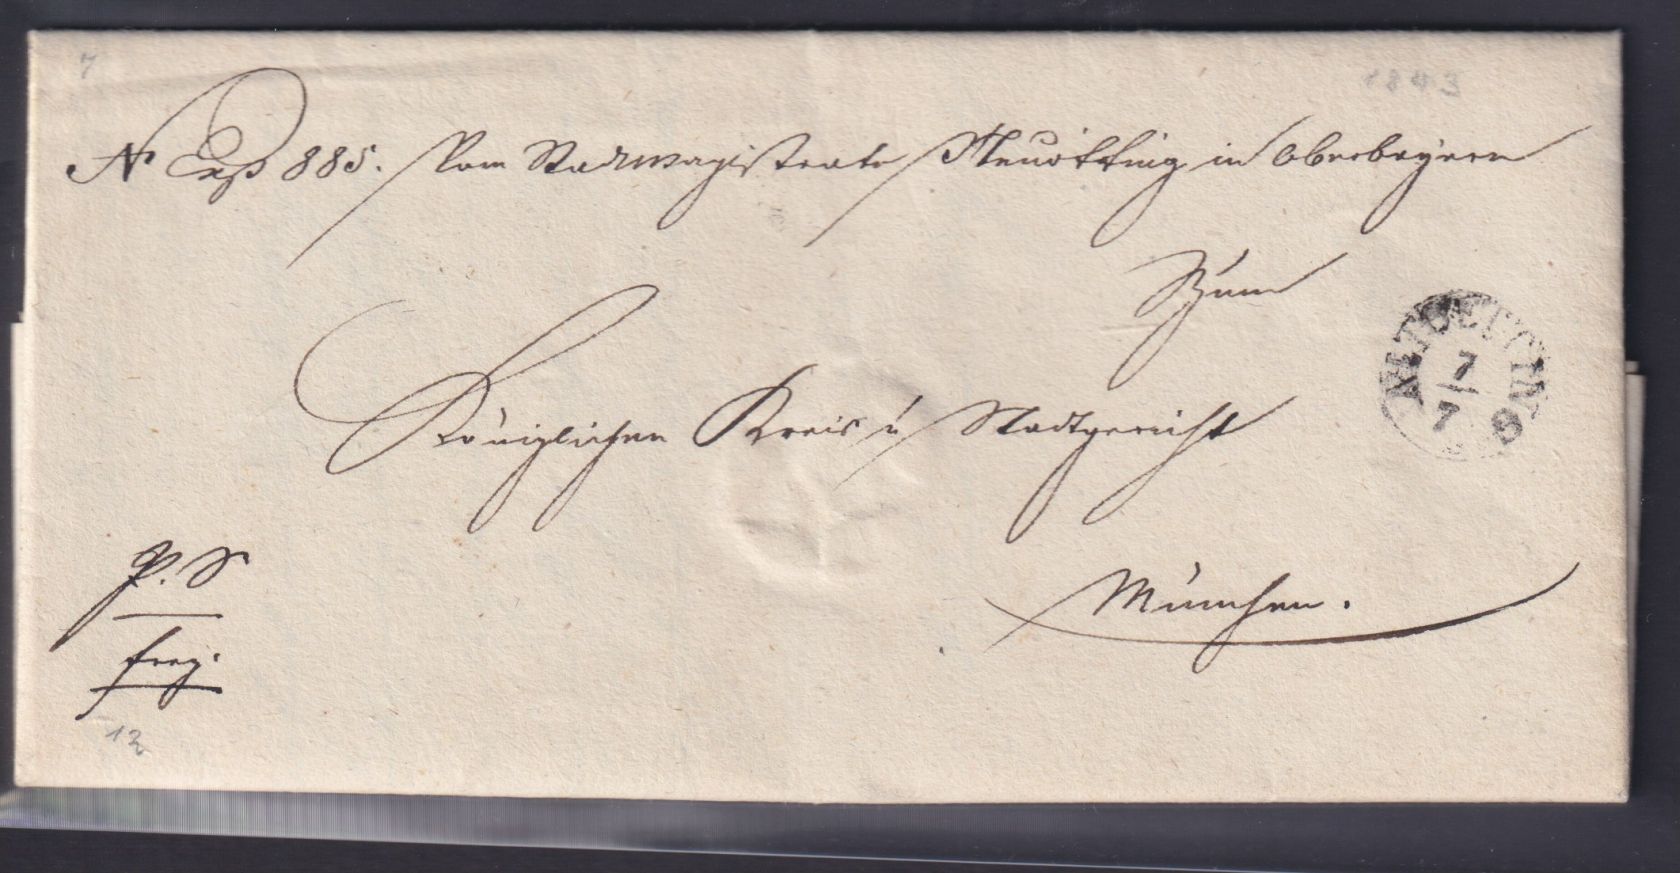 7
1843
N Exp 885. Vom Stadtmagistrate Neuötting in Oberbayern
Zum
ALTOETTING
7
7
Königlichen Kreis u Stadtgericht
P. S
München.
frey.
12